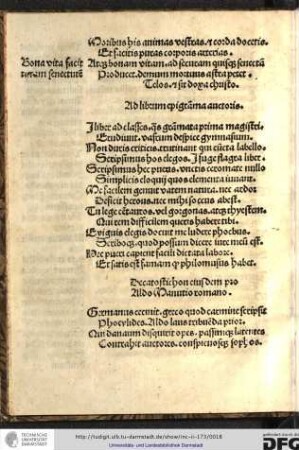 Moribus his animas vestras, & corda docetis.
Et facitis puras corporis aeterias.
Bona vita facit
Atq; bonam vitam, ad securam quisq; senectā
tutam senectutē
Producet, demum mortuus astra petet.
Telos, & sit doxa christo.
Ad librum epigrāma auctoris.
I liber ad classes, quis grāmata prima magistri
Erudiunt, vastum despice gymnasium.
Non duris criticis, trutinant qui cūcta labello.
Scripsimus hos elegos, I fuge flagra liber.
Scripsimus hec pueris, vnctis ceromate nullo
Simplicis eloquij quos elementa iuuant.
Me facilem genuit vatem natura, nec ardor
Deficit herous, nec mihi soccus abest.
Tu lege cētauros, vel gorgonas, atq; thyestem.
Qui rem difficilem queris habere tibi.
Exiguis elegis docuit me ludere phoebus.
Scriboq;, quod possum dicere iure meū est.
Me pueri capient facili dictata labore.
Et satis est famam qd philomusus habet.
Decatostichon eiusdem pro
Aldo Manutio romano.
Germanus cecinit, greco quod carmine scripsit
Phocylides, Aldo laus tribuēda prior.
Qui danaum disquirit opes, passimq; latentes
Contrahit auctores, conspicuosq; sophos.
TECHNISCHE UNIVERSITÄT DARMSTADT
http://tudigit.ulb.tu-darmstadt.de/show/inc-ii-173/0018
Universitäts- und Landesbibliothek Darmstadt
gefördert durch
DFG